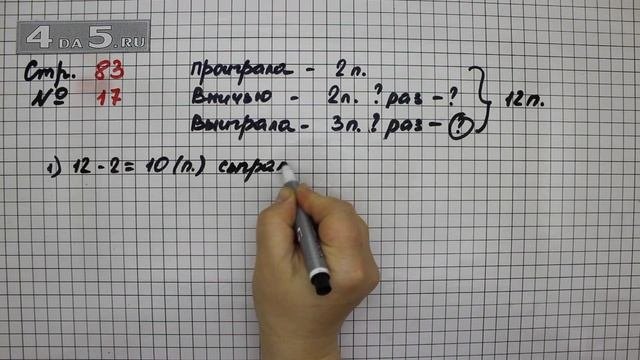 4 DA 5.RU
Стр. 83
№ 17
Проиграла - 2 п.
Вничью - 2 п. ? раз - ?
Выиграла - 3 п. ? раз - ?
12 п.
1) 12 - 2 = 10 (п.) сыграл